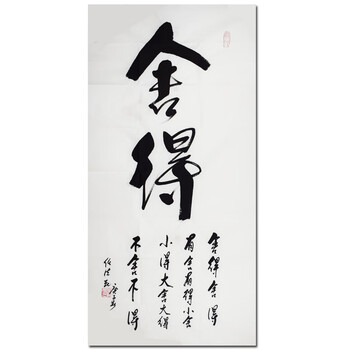 舍得
舍得舍得
有舍有得小舍
小得大舍大得
不舍不得